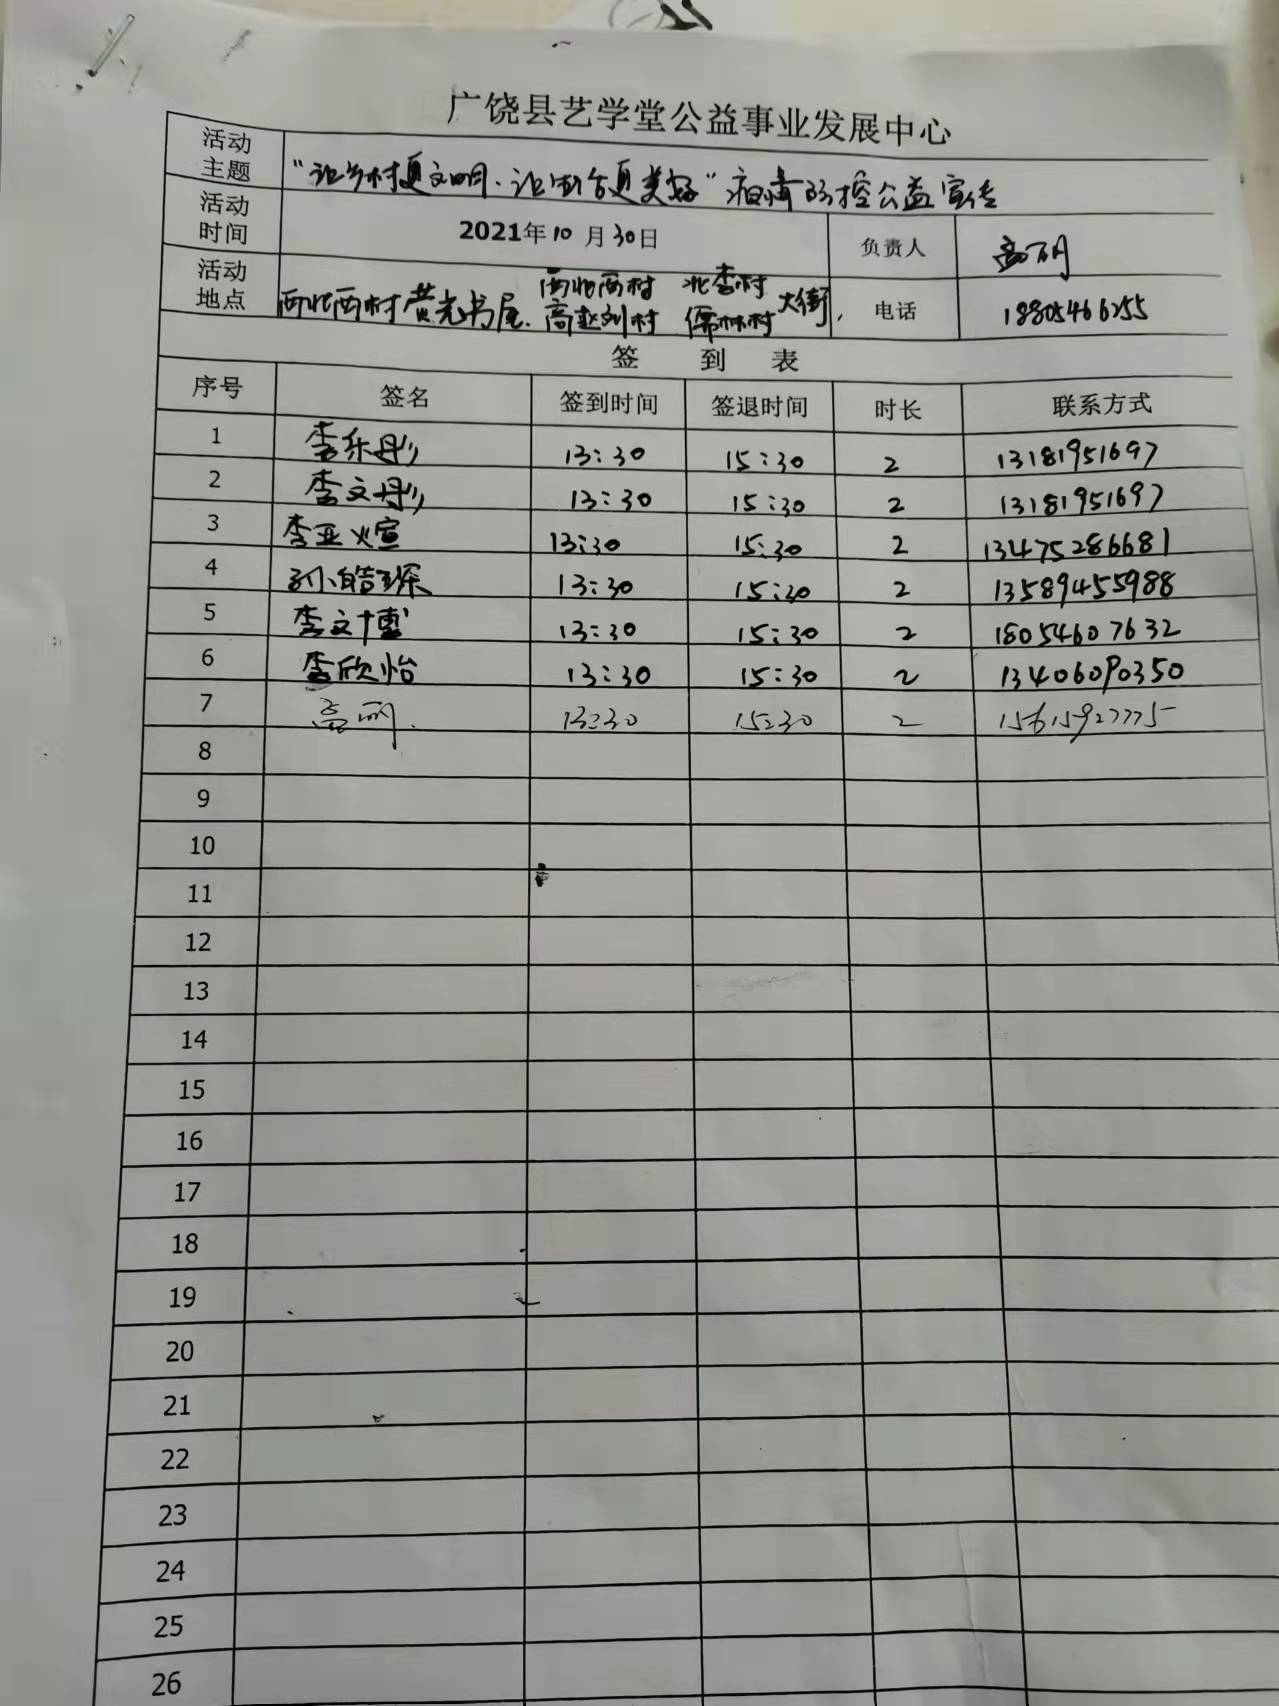 广饶县艺学堂公益事业发展中心
活动主题 "让乡村更文明、让烟台更美好"疫情防控公益宣传
活动时间 2021年10月30日 负责人 高丽
活动地点 西北西村黄光书屋、西北西村 北李村 高赵刘村 儒林村 大街, 电话 18805466255
签 到 表
序号 签名 签到时间 签退时间 时长 联系方式
1 李乐彤 13:30 15:30 2 13181951697
2 李文彤 13:30 15:30 2 13181951697
3 李亚煊 13:30 15:30 2 13475286681
4 孙皓琛 13:30 15:30 2 13589455988
5 李文博 13:30 15:30 2 18054607632
6 李欣怡 13:30 15:30 2 13406090350
7 高丽. 13:30 15:30 2 15615927775
8
9
10
11
12
13
14
15
16
17
18
19
20
21
22
23
24
25
26